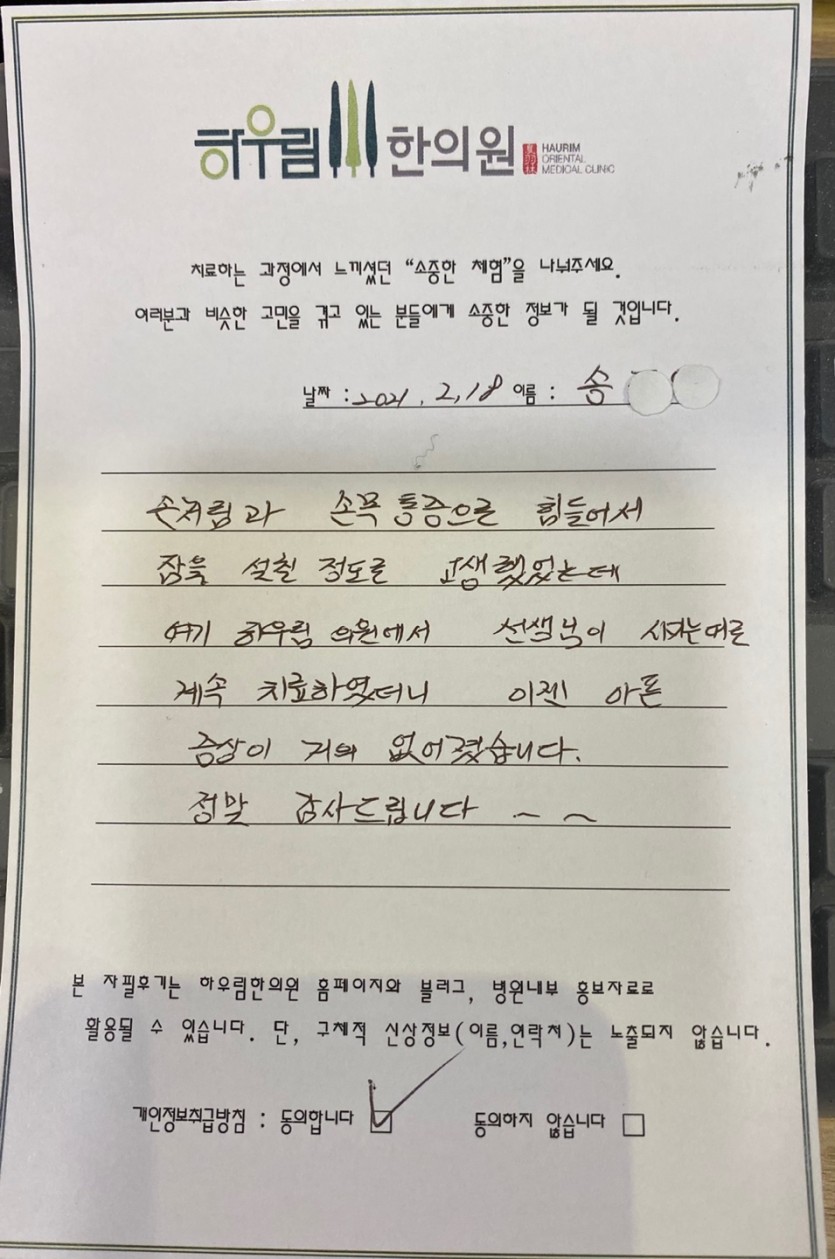 하우림 한의원 HAURIM
ORIENTAL
MEDICAL CLINIC
치료하는 과정에서 느끼셨던 “소중한 체험”을 나눠주세요.
여러분과 비슷한 고민을 겪고 있는 분들에게 소중한 정보가 될 것입니다.
날짜 : 2021. 2, 18 이름 : 송
손저림과 손목 통증으로 힘들어서
잠을 설칠 정도로 고생했었는데
여기 하우림 의원에서 선생님이 시키는데로
계속 치료하였더니 이젠 아픈
증상이 거의 없어졌습니다.
정말 감사드립니다 ~ ~
본 자필후기는 하우림한의원 홈페이지와 블러그, 병원내부 홍보자료로
활용될 수 있습니다. 단, 구체적 신상정보(이름,연락처)는 노출되지 않습니다.
개인정보취급방침 : 동의합니다 ☑ 동의하지 않습니다 □